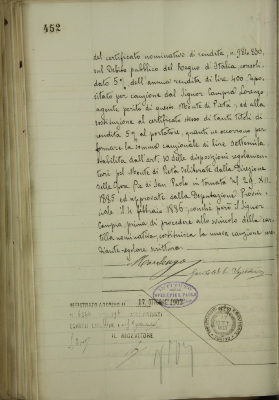 452
del certificato nominativo di rendita, n. 980.230,
sul Debito pubblico del Regno d'Italia consoli-
dato 5% dell'annua rendita di lire 400, depo-
sitato per cauzione dal Signor Campra Lorenzo
agente perito di questo Monte di Pietà, ed alla
sostituzione al certificato stesso di tanti titoli di
rendita 5% al portatore, quanti ne occorrono per
formare la somma cauzionale di lire settemila
stabilita dall'art. 10 delle disposizioni regolamen-
tari pel Monte di Pietà deliberate dalla Direzione
delle Opere Pie di San Paolo in Torino
1885 ed approvate dalla Deputazione Provin-
ciale il febbraio 1886, purchè però il Signor
Campra, prima di procedere allo svincolo della car-
tella nominativa, costituisca la nuova cauzione me-
diante regolare scrittura.
REGISTRATO A TORINO IL 17 OTTOBRE 1902
IL RICEVITORE